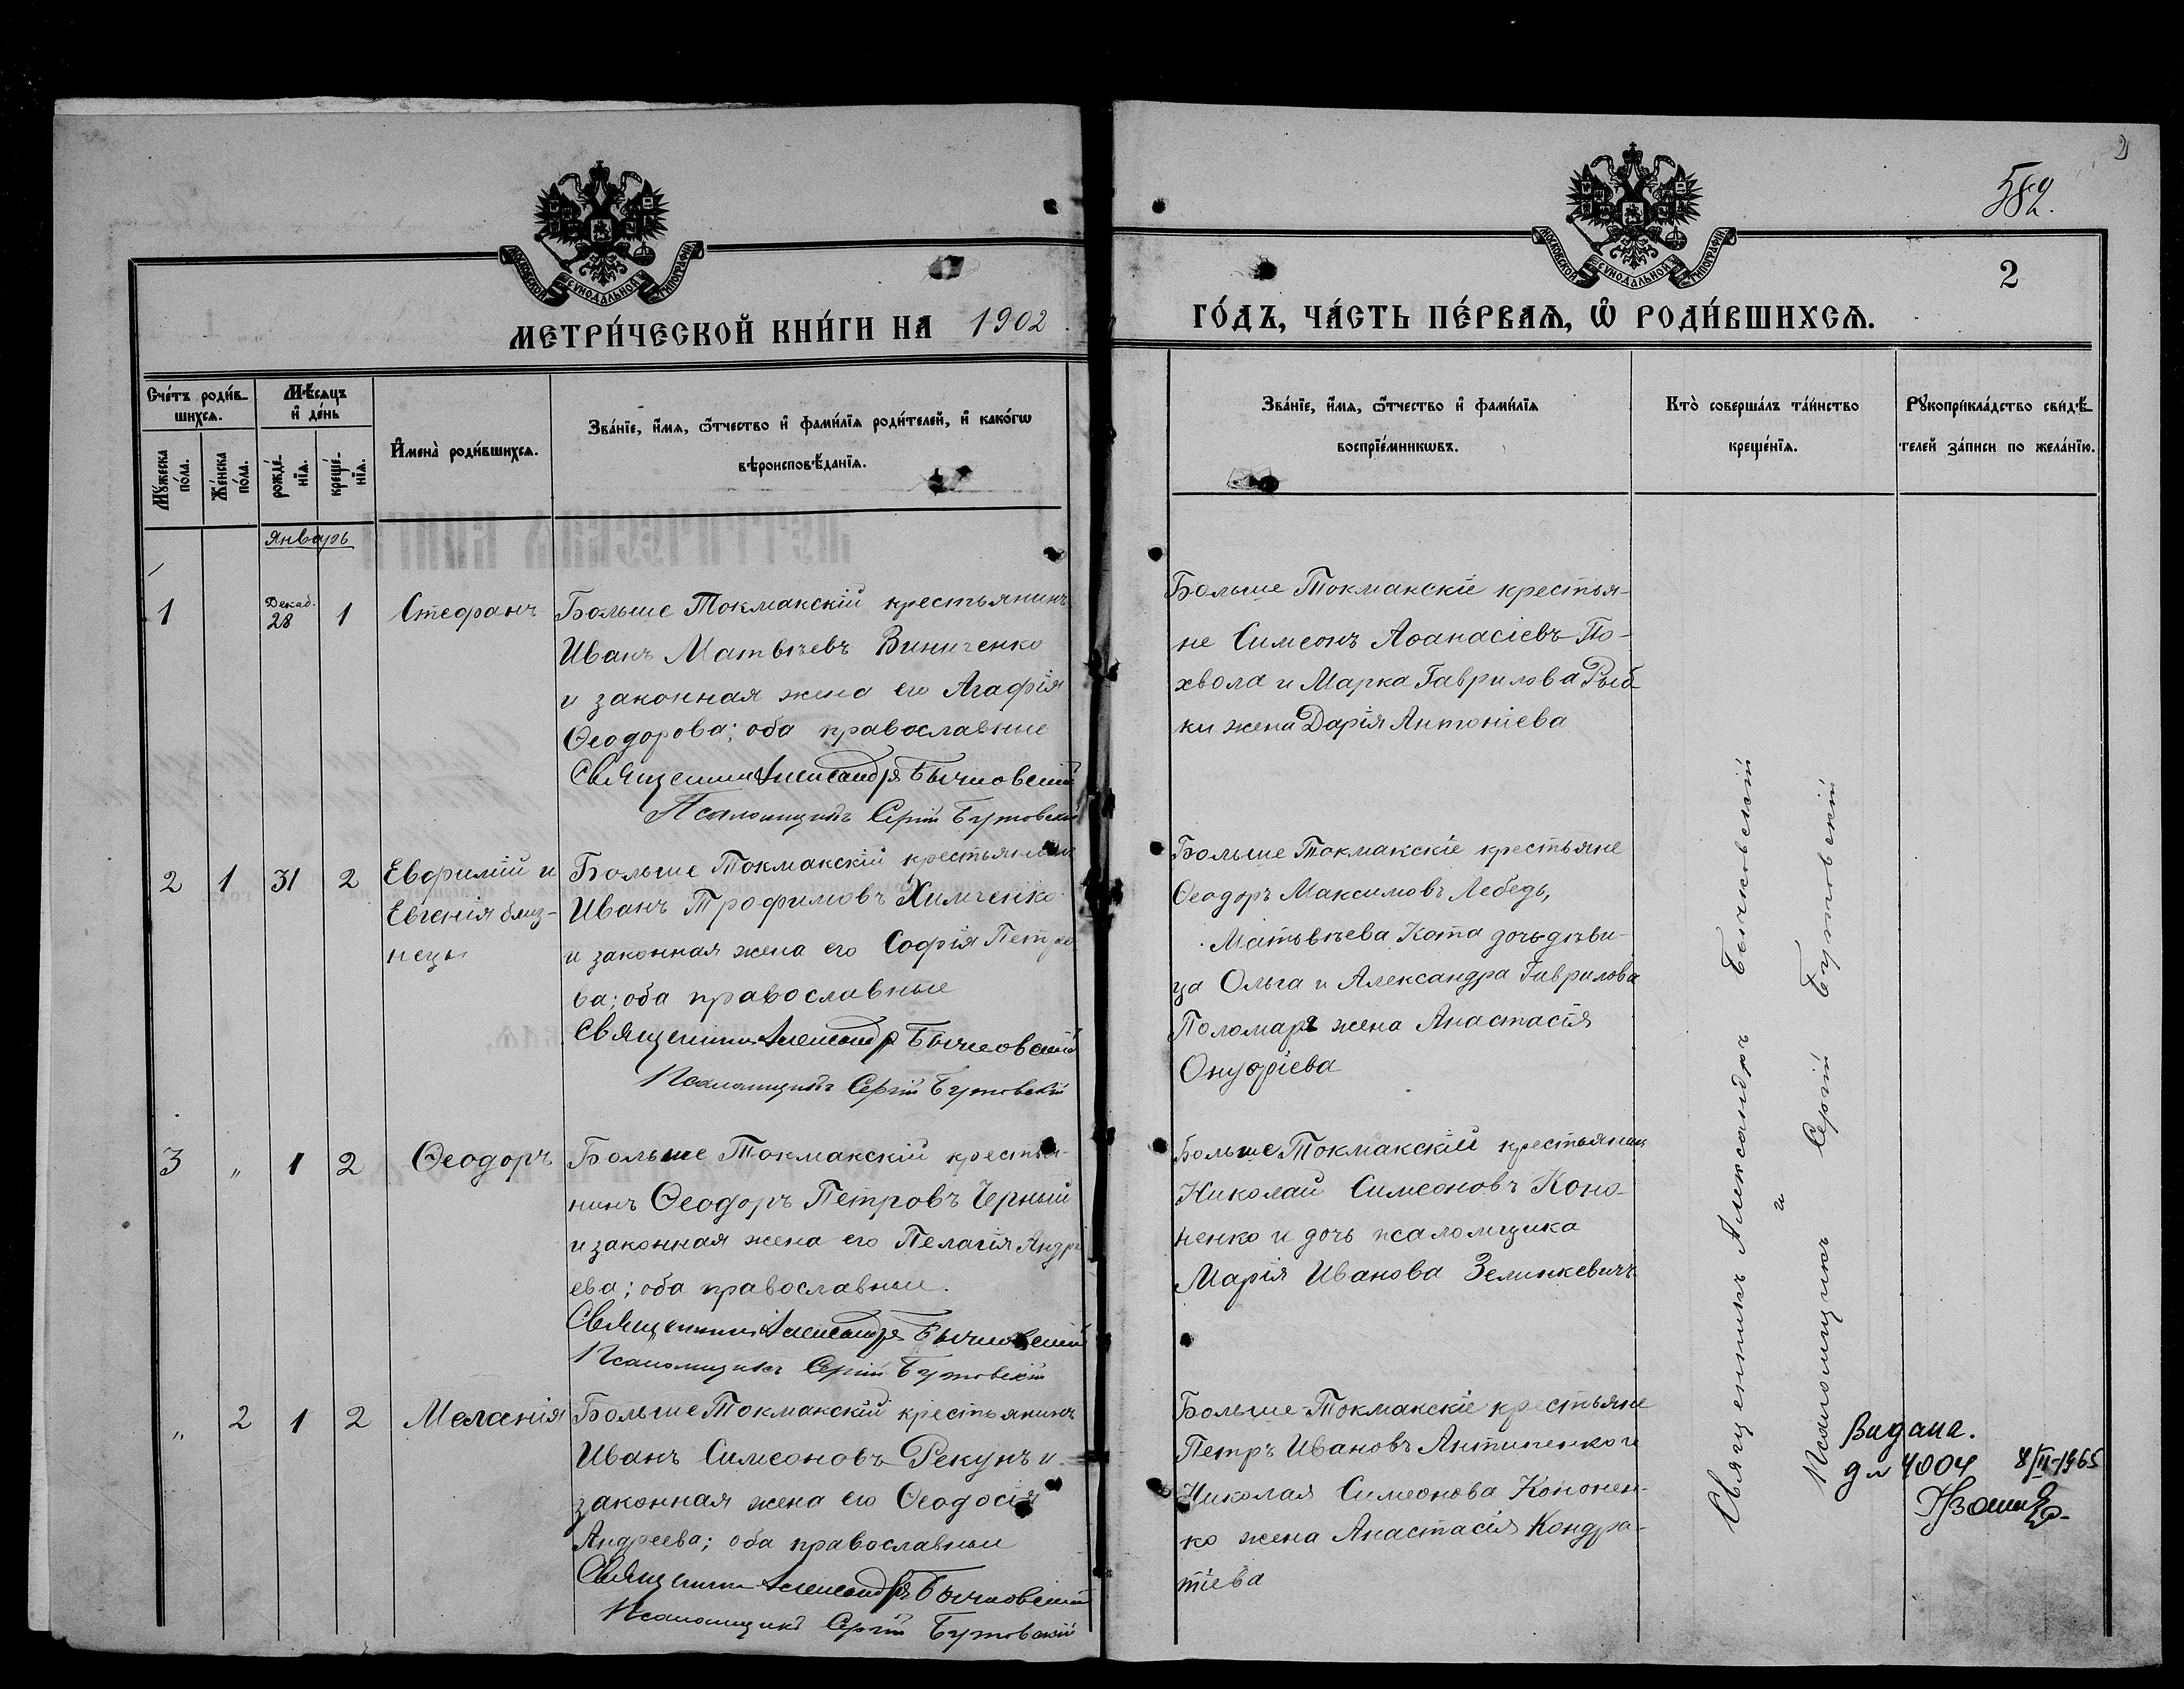 2
582.
МОСКОВСКОЙ СѴНОДАЛЬНОЙ ТИПОГРАФІИ
МОСКОВСКОЙ СѴНОДАЛЬНОЙ ТИПОГРАФІИ
2
МЕТРИ́ЧЕСКОЙ КНИ́ГИ НА 1902
ГО́ДЪ, ЧА́СТЬ ПЕ́РВАѦ, Ѽ РОДИ́ВШИХСѦ.
Сче́тъ роди́в-
шихсѧ.
Мѣсѧцъ
и҆ де́нь
Мꙋ́жеска
по́ла.
Же́нска
по́ла.
рожде́-
нїѧ.
креще́-
нїѧ.
И҆мена̀ роди́вшихсѧ.
Зва́нїе, и҆́мѧ, ѻ҆́тчество и҆ фами́лїѧ роди́телей, и҆ како́гѡ
вѣроисповѣ́данїѧ.
Зва́нїе, и҆́мѧ, ѻ҆́тчество и҆ фами́лїѧ
воспрїе́мникѡвъ.
Кто̀ соверша́лъ та́инство
креще́нїѧ.
Рꙋкоприкла́дство свидѣ́-
телей за́писи по жела́нїю.
Январь
1
Декаб.
28
1
Стефанъ
Больше Токмакскій крестьянинъ
Иванъ Матвѣевъ Виниченко
и законная жена его Агафія
Ѳеодорова; оба православные
Священникъ Александръ Бычковскій
Псаломщикъ Сергій Бутовскій
Больше Токмакскіе крестья-
не Симеонъ Аѳанасіевъ По-
хвола и Марка Гаврилова Рыб-
ки жена Дарія Антоніева
2
1
31
2
Евфимій и
Евгенія близ-
нецы
Больше Токмакскій крестьянинъ
Иванъ Трофимовъ Химченко
и законная жена его Софія Петро
ва; оба православные
Священникъ Александръ Бычковскій
Псаломщикъ Сергій Бутовскій
Больше Токмакскіе крестьяне
Ѳеодоръ Максимовъ Лебедь,
Матвѣева Кота дочь дѣви-
ца Ольга и Александра Гаврилова
Поломаря жена Анастасія
Онуфріева
3
"
1
2
Ѳеодоръ
Больше Токмакскій крестья-
нинъ Ѳеодоръ Петровъ Черный
и законная жена его Пелагія Андре
ева; оба православные.
Священникъ Александръ Бычковскій
Псаломщикъ Сергій Бутовскій
Больше Токмакскій крестьянин
Николай Симеоновъ Коно-
ненко и дочь псаломщика
Марія Иванова Зелинкевичъ
"
2
1
2
Меланія
Больше Токмакскій крестьянинъ
Иванъ Симеоновъ Рекунъ и
законная жена его Ѳеодосія
Андреева; оба православные
Священникъ Александръ Бычковскій
Псаломщикъ Сергій Бутовскій
Больше-Токмакскіе крестьяне
Петръ Ивановъ Антипенко и
Николая Симеонова Кононен-
ко жена Анастасія Кондра-
тіева
Священникъ Александръ Бычковскій
и
Псаломщикъ Сергій Бутовскій
Видана.
4004 8/II-1965